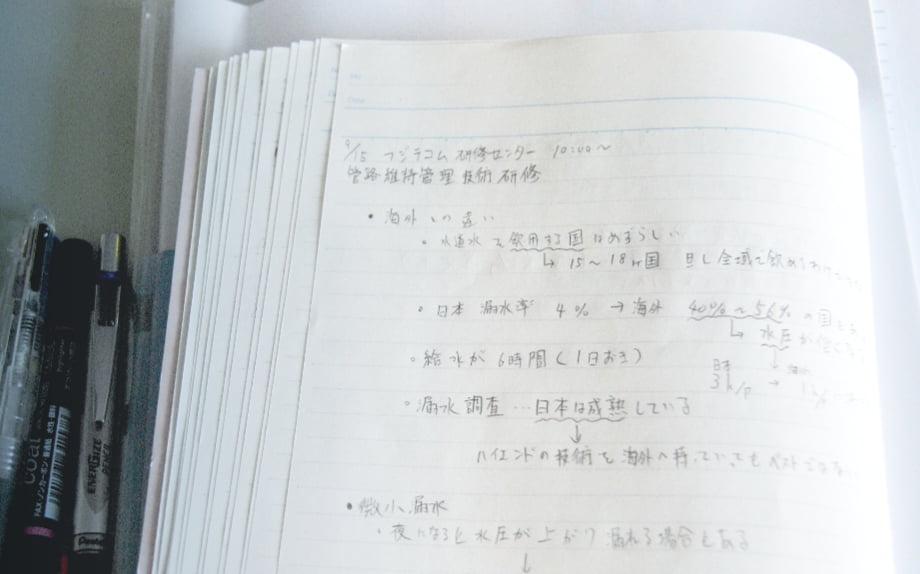 9/15 フジテコム 研修センター 10:00〜
管路維持管理技術研修
• 海外との違い
◦ 水道水を飲用する国はめずらしい
↳ 15〜18ヶ国 但し全域で飲める
◦ 日本 漏水率 4% → 海外 40%〜56%の国も
↳ 水圧が低い
◦ 給水が6時間(1日おき)
日本 3k/p →
◦ 漏水調査…日本は成熟している
↓
ハイエンドの技術を海外へ持っていってもベストではない
• 微小漏水
◦ 夜になると水圧が上がり漏れる場合もある
↓
coat
FAX ノンカーボン 普通紙 水性・顔料
ENERGIZE
PENCIL
Pentel